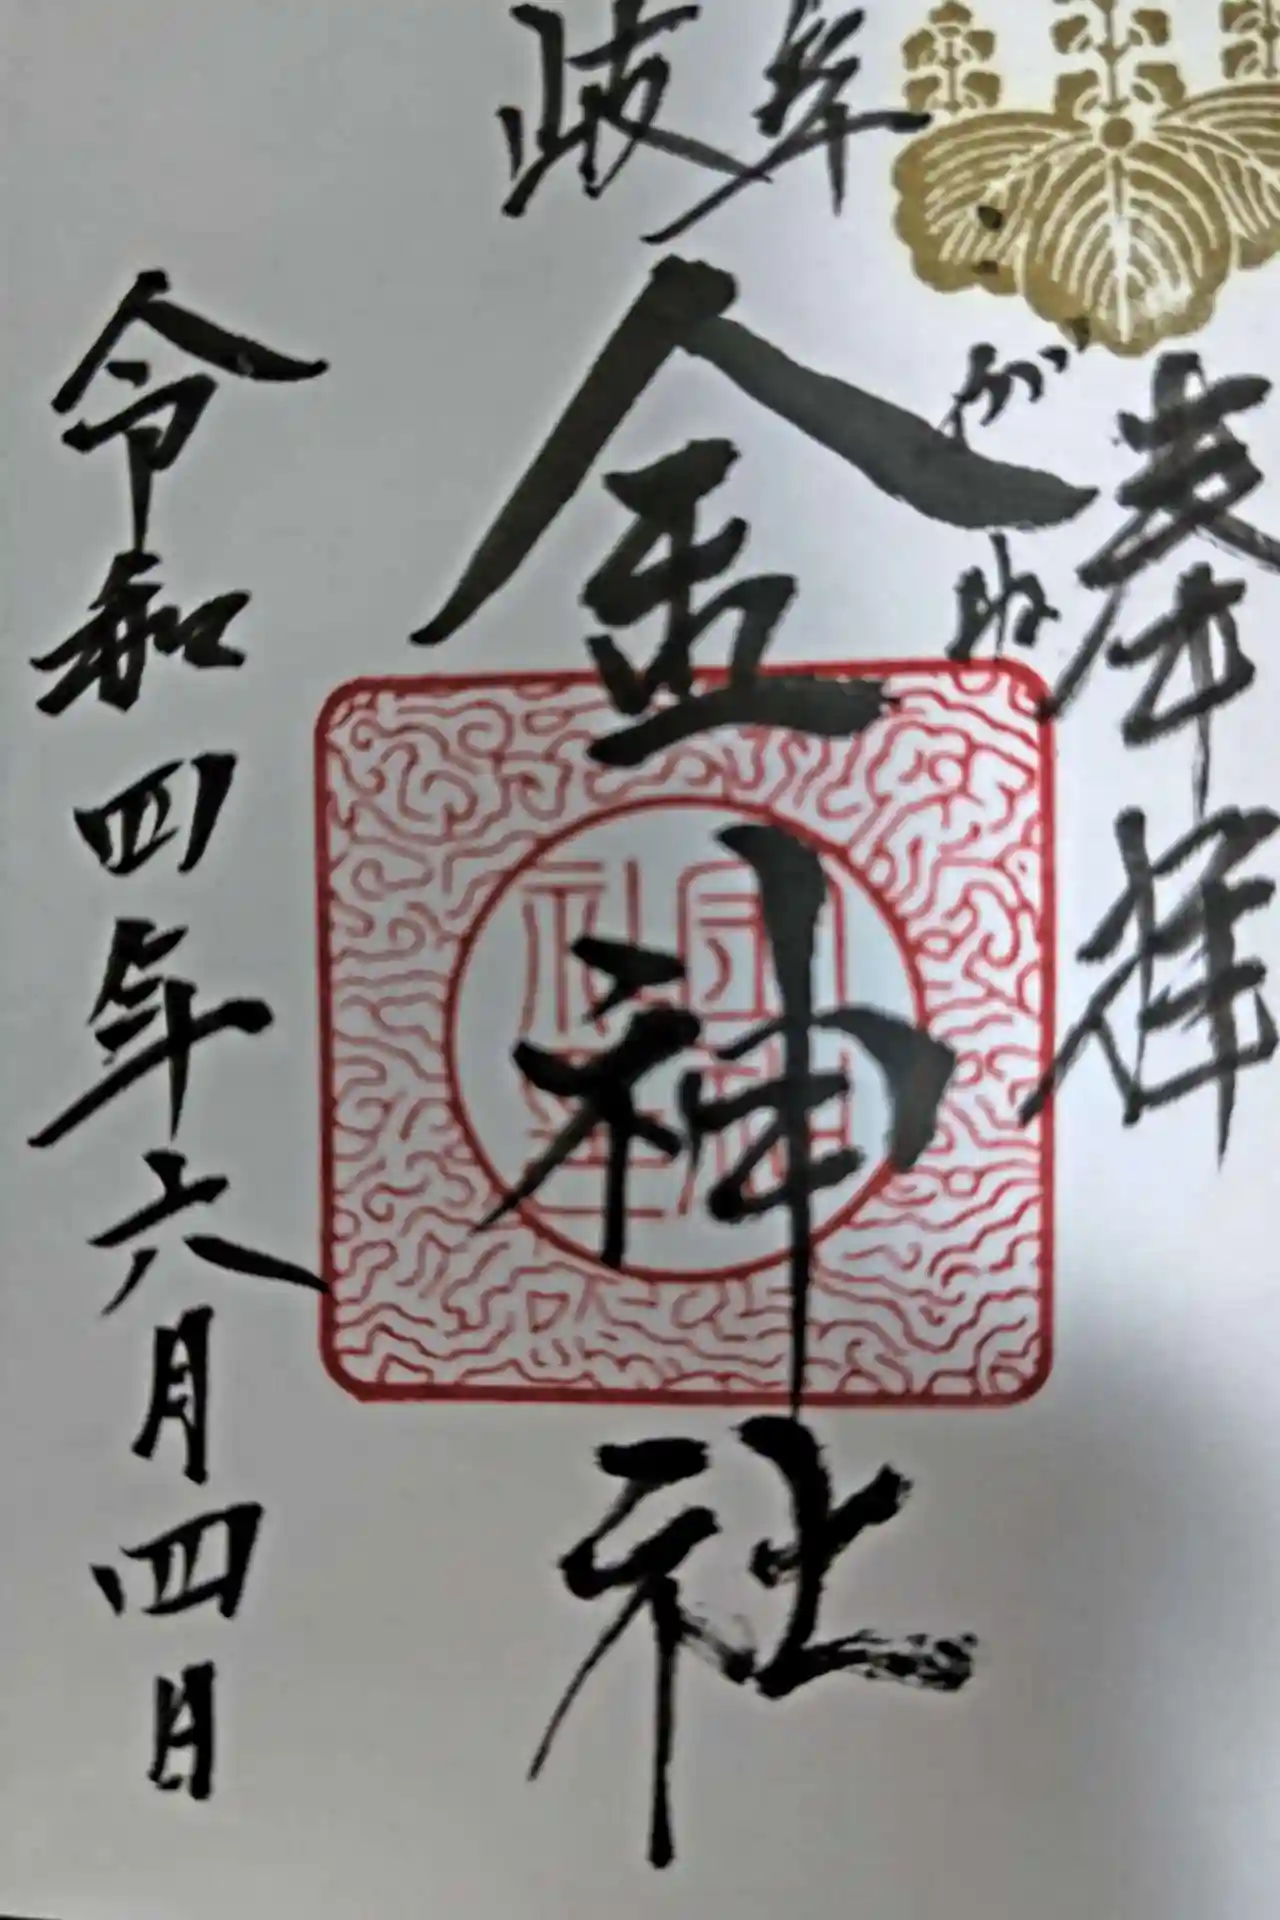 奉拝
岐阜
金神社
がね
令和四年六月四日